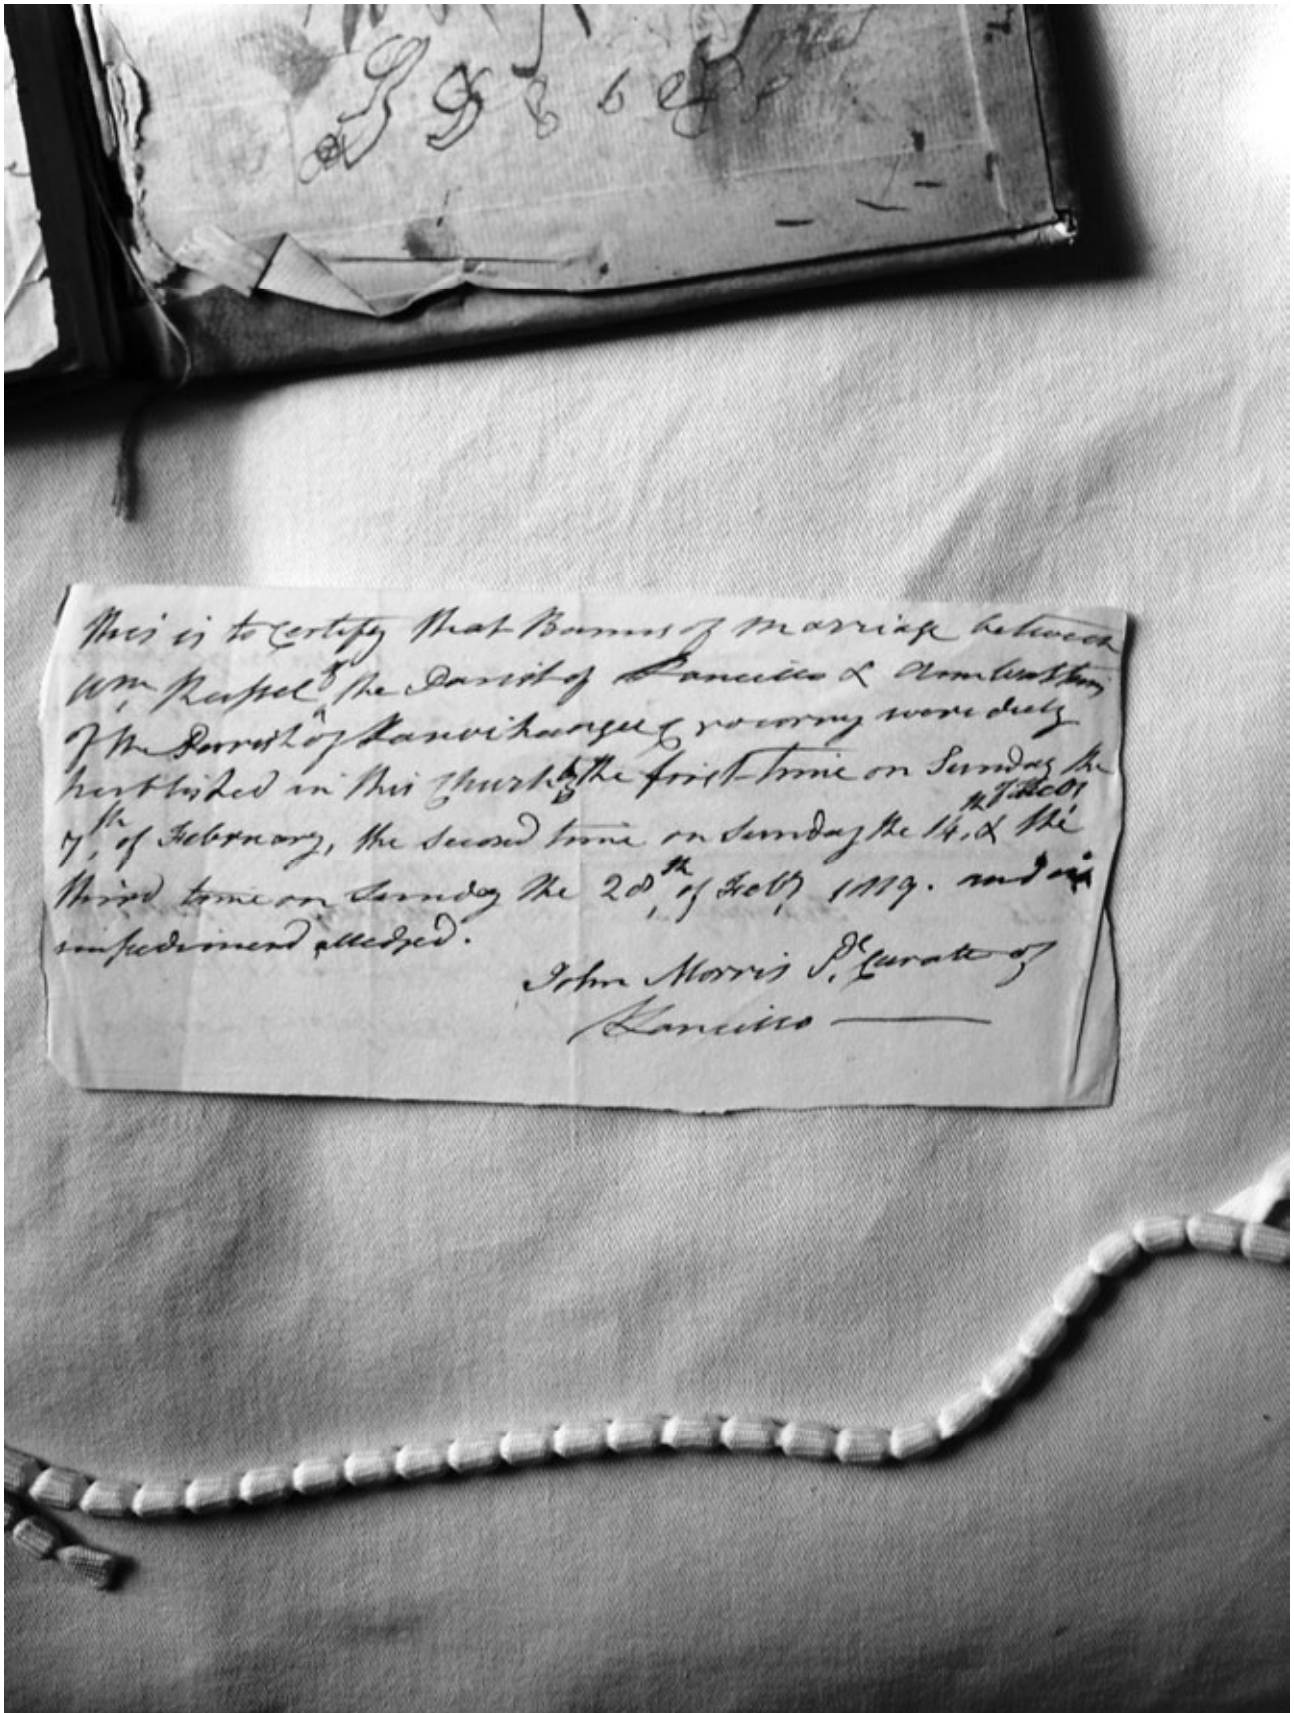 This is to Certify that Banns of Marriage between
Wm. Russel of the Parish of Lancillo & Ann Watkins
of the Parrish of were duly
published in this Church the first time on Sunday the
7th, of February, the second time on Sunday the 14th, of Feby & the
third time on Sunday the 28th, of Feby, 1819. and no
impediment alledged.
John Morris Pl. Curate of
Lancillo